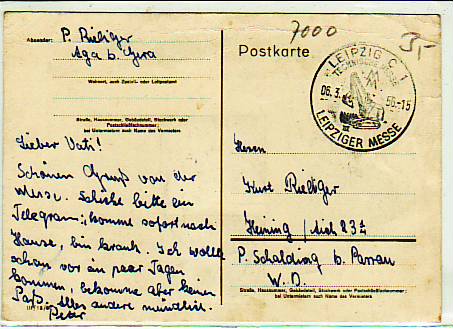 7000
3,-
Absender: P. Rieltger
Aga b. Gera
Wohnort, auch Zustell- oder Leitpostamt
Straße, Hausnummer, Gebäudeteil, Stockwerk oder
Postschließfachnummer;
bei Untermietern auch Name des Vermieters
Postkarte
LEIPZIG C 1
TECHNISCHE MESSE
06.3. 50.-15
LEIPZIGER MESSE
Lieber Vati!
Schönen Gruß von der
Messe. Schicke bitte ein
Telegramm: komme sofort nach
Hause, bin krank. Ich wollte
schon vor ein paar Tagen
kommen, bekomme aber keinen
Paß. Alles andere mündlich.
Peter
Herrn
Kurt Rieltger
Heining /
P. Schalding b. Passau
W. D.
Straße, Hausnummer, Gebäudeteil, Stockwerk oder Postschließfachnummer;
bei Untermietern auch Name des Vermieters